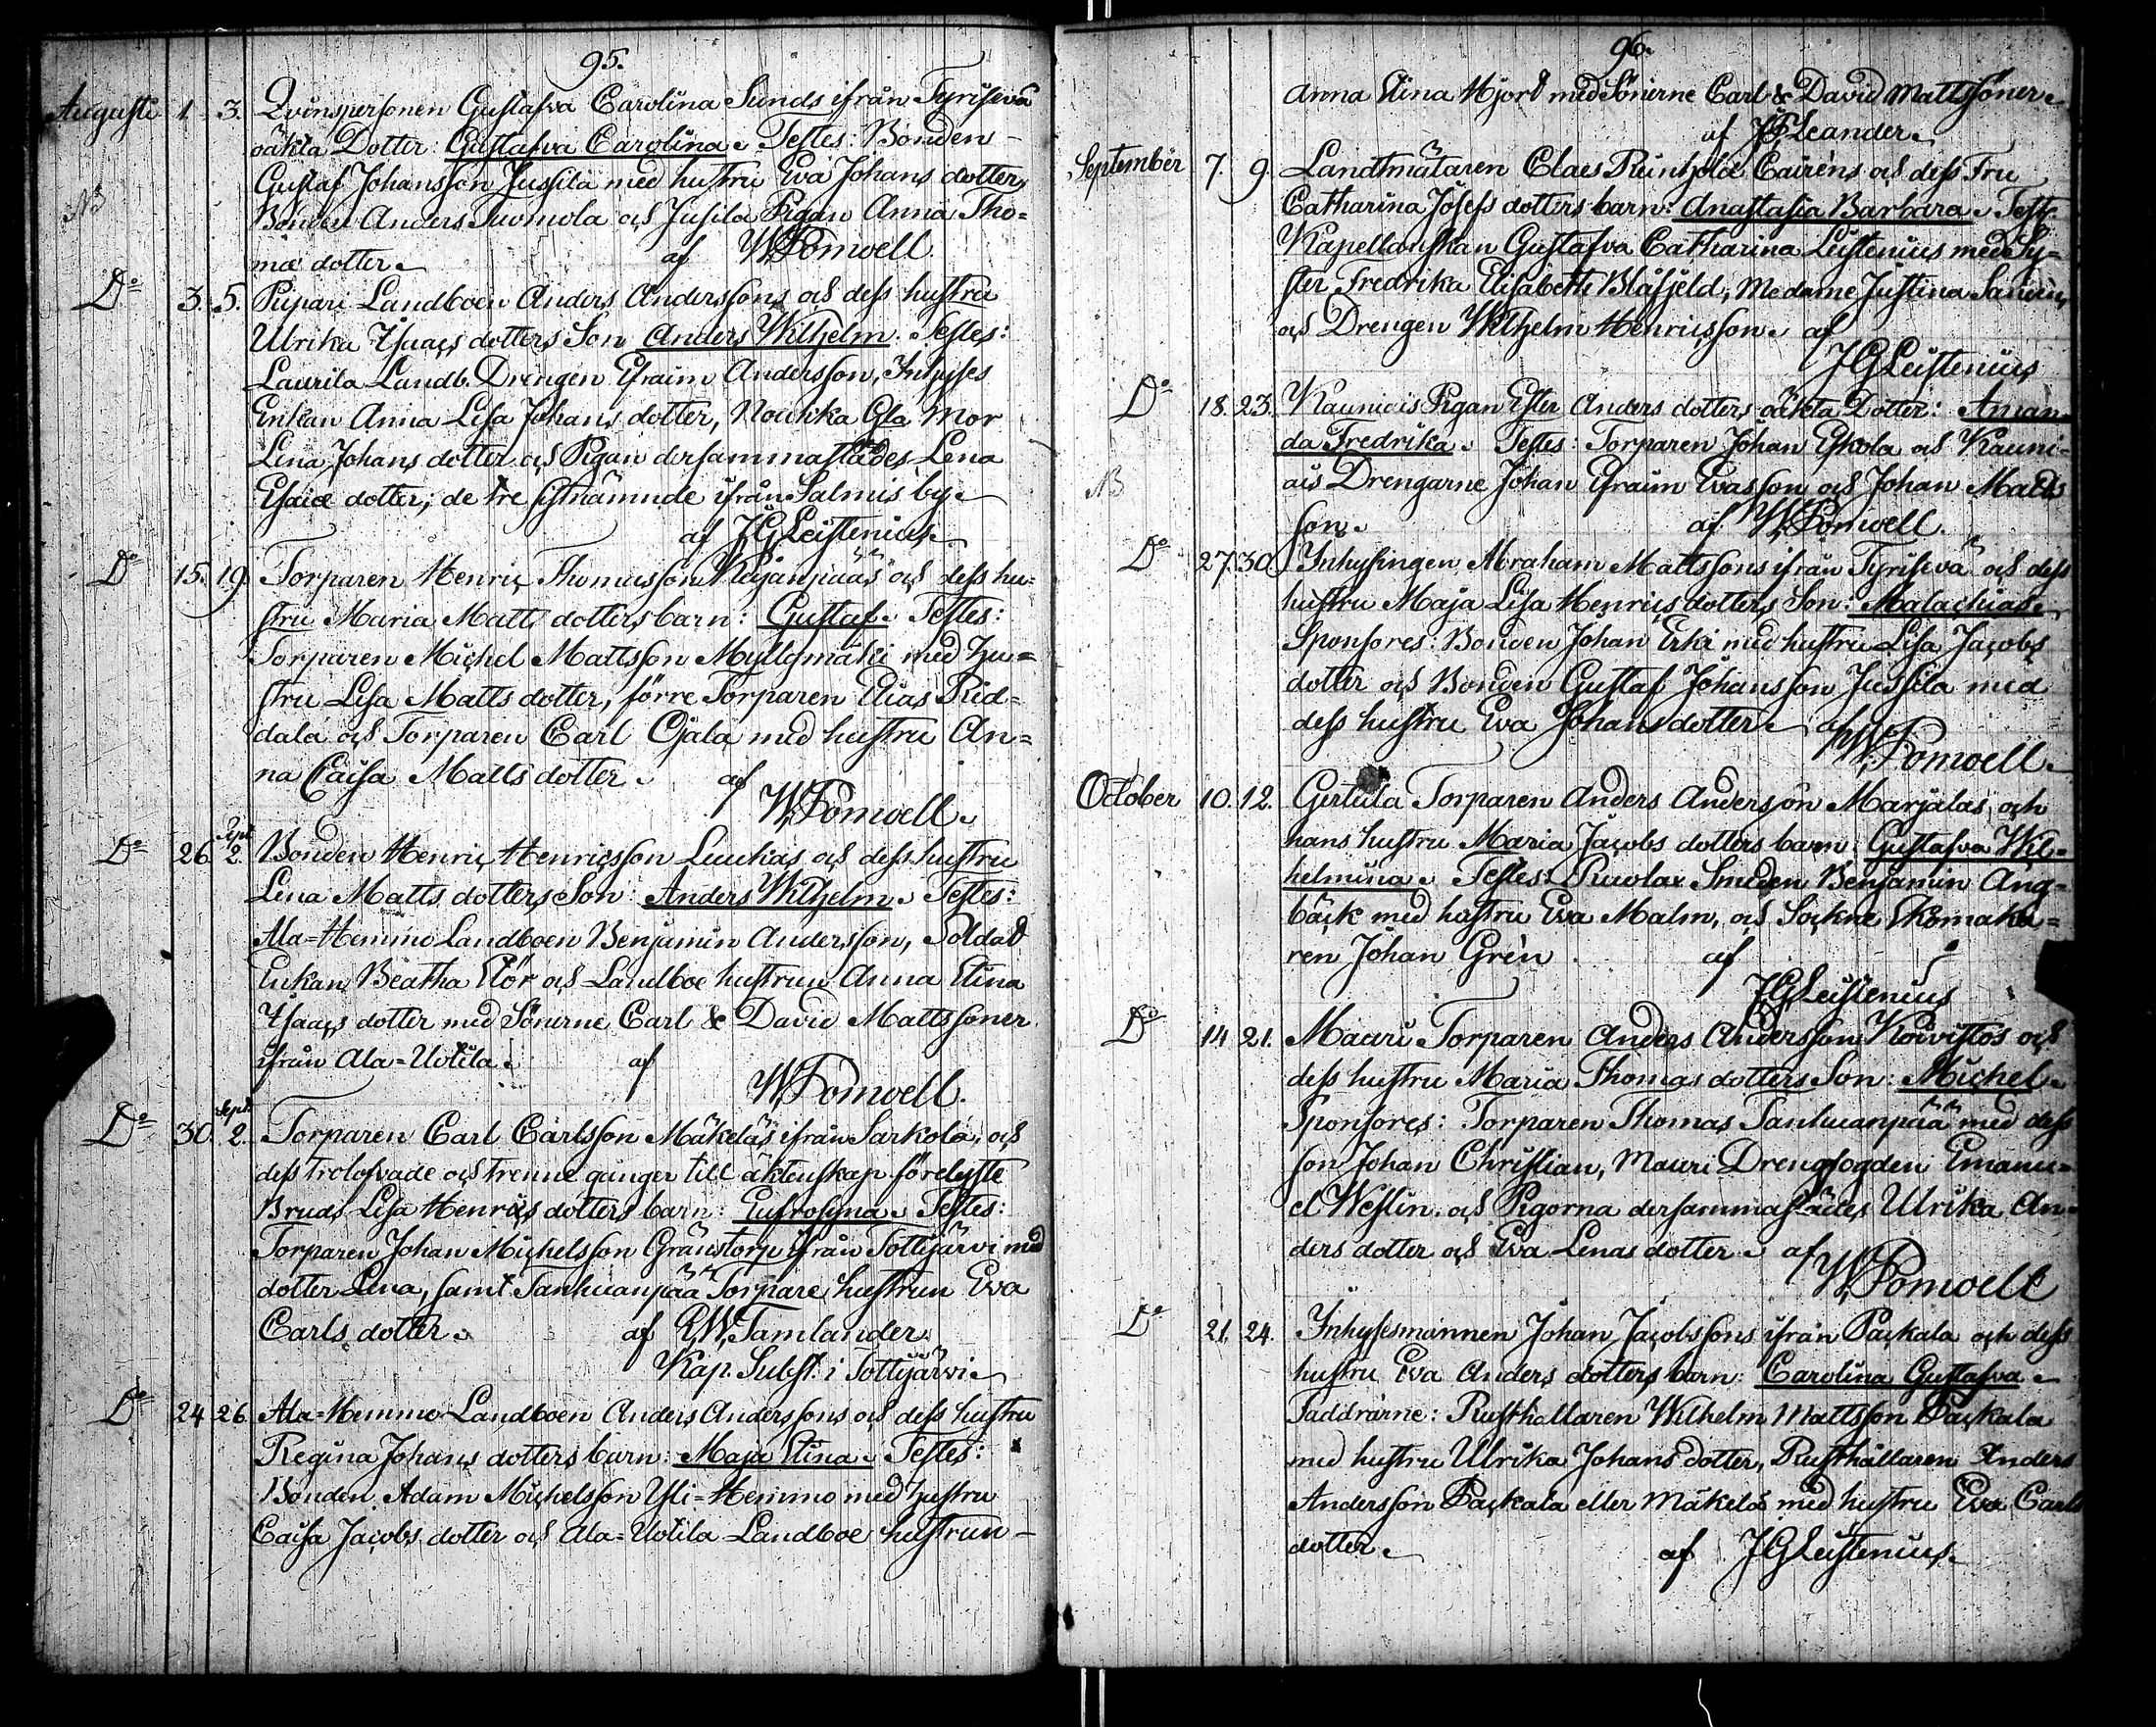 95.
Augusti 1. 3. Qvinspersonen Gustafva Carolina Lunds ifrån Tyrisevä
oäkta Dotter: Gustafva Carolina. Testes: Bonden
Gustaf Johansson Jussila med hustru Eva Johans dotter,
Bonden Anders Tuomola och Jusila Pigan Anna Tho=
mæ dotter. af W. Pomoell.
Do 3. 5. Pispari Landboen Anders Anderssons och dess hustru
Ulrika Isaacs dotters Son Anders Wilhelm. Testes:
Laurila Landb. Drengen Efraim Andersson, Inhyses
Enkan Anna Lisa Johans dotter, Noukka Gla Mor
Lena Johans dotter och Pigan dersammastädes Lena
Esaiæ dotter; de tre sistnämnde ifrån Salmis by.
af J G Leistenius.
Do 15. 19. Torparen Henric Thomasson Kojanpääs och dess hu=
stru Maria Matts dotters barn: Gustaf. Testes:
Torparen Michel Mattsson Myllymäki med hu=
stru Lisa Matts dotter, förre Torparen Elias Rid=
dala och Torparen Carl Ojala med hustru An=
na Caisa Matts dotter. af
W. Pomoell.
Do 26. Sept. 2. Bonden Henric Henricsson Luukas och dess hustru
Lena Matts dotters Son: Anders Wilhelm. Testes:
Ala=Hemmo Landboen Benjamin Andersson, Soldat
Enkan Beatha Stör och Landboe hustrun Anna Stina
Isaacs dotter med Sönerne Carl & David Mattssöner
ifrån Ala=Uotila. af
W. Pomoell.
Do 30. Sept. 2. Torparen Carl Carlsson Mäkeläs ifrån Sarkola, och
dess trolofvade och trenne gånger till äktenskap förelyste
Bruds Lisa Henrics dotters barn: Eufrosina. Testes:
Torparen Johan Michelsson Gränstorp ifrån Tottijärvi med
dotter Lena, samt Tanhuanpää Torpare hustrun Eva
Carls dotter. af G. W. Tamlander
Kap. Subst. i Tottijärvi.
Do 24. 26. Ala=Hemmo Landboen Anders Anderssons och dess hustru
Regina Johans dotters barn: Maja Stina. Testes:
Bonden Adam Michelsson Yli=Hemmo med hustru
Caisa Jacobs dotter och Ala=Uotila Landboe hustrun
96.
Anna Stina Hjort med Sönerne Carl & David Mattssöner.
af Leander.
September 7. 9. Landtmätaren Claes Reinhold Cairéns och dess Fru
Catharina Josefs dotters barn: Anastasia Barbara. Test.
Kapellanskan Gustafva Catharina Leistenius med Sy=
ster Fredrika Elisabeth Blåfjeld, Madame Justina
och Drengen Wilhelm Henricsson. af
J G Leistenius
Do 18. 23. Kauniais Pigan Ester Anders dotters oäkta Dotter: Aman=
da Fredrika. Testes: Torparen Johan Eskola och Kauni=
NB ais Drengarne Johan Efraim Evasson och Johan Matts
son. af W. Pomoell.
Do 27. 30. Inhysingen Abraham Mattssons ifrån Tyrisevä och dess
hustru Maja Lisa Henrics dotters Son: Malachias.
Sponsores: Bonden Johan Erki med hustru Lisa Jacobs
dotter och Bonden Gustaf Johansson Jussila med
dess hustru Eva Johans dotter. af
W. Pomoell.
October 10. 12. Gertula Torparen Anders Andersson Marjalas, och
hans hustru Maria Jacobs dotters barn: Gustafva Wil=
helmina. Testes: Smeden Benjamin Ång=
bäck med hustru Eva Malm, och Sockne Skomaka=
ren Johan Grén. af
J G Leistenius
Do 14. 21. Mauri Torparen Anders Andersson Koivistos och
dess hustru Maria Thomas dotters Son: Michel.
Sponsores: Torparen Thomas Tanhuanpää med dess
son Johan Christian, Mauri Drengfogden Emanu=
el Wesslin, och Pigorna dersammastädes Ulrika An=
ders dotter och Eva Lenas dotter. af
W. Pomoell
Do 21. 24. Inhysesmannen Johan Jacobssons ifrån Packala och dess
hustru Eva Anders dotters barn: Carolina Gustafva.
Faddrarne: Rusthållaren Wilhelm Mattsson Packala
med hustru Ulrika Johans dotter, Rusthållaren Anders
Andersson Packala eller Mäkelä med hustru Eva Carls
dotter. af J G Leistenius.